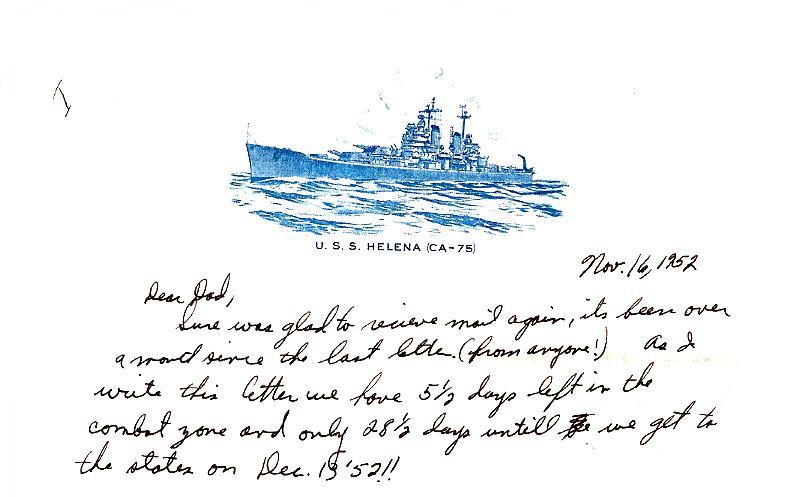 U. S. S. HELENA (CA-75)
Nov. 16, 1952
Dear Dad,
Sure was glad to recieve mail again, its been over
a month since the last letter. (from anyone!) As I
write this letter we have 5½ days left in the
combat zone and only 28½ days until we get to
the states on Dec. 13 '52!!